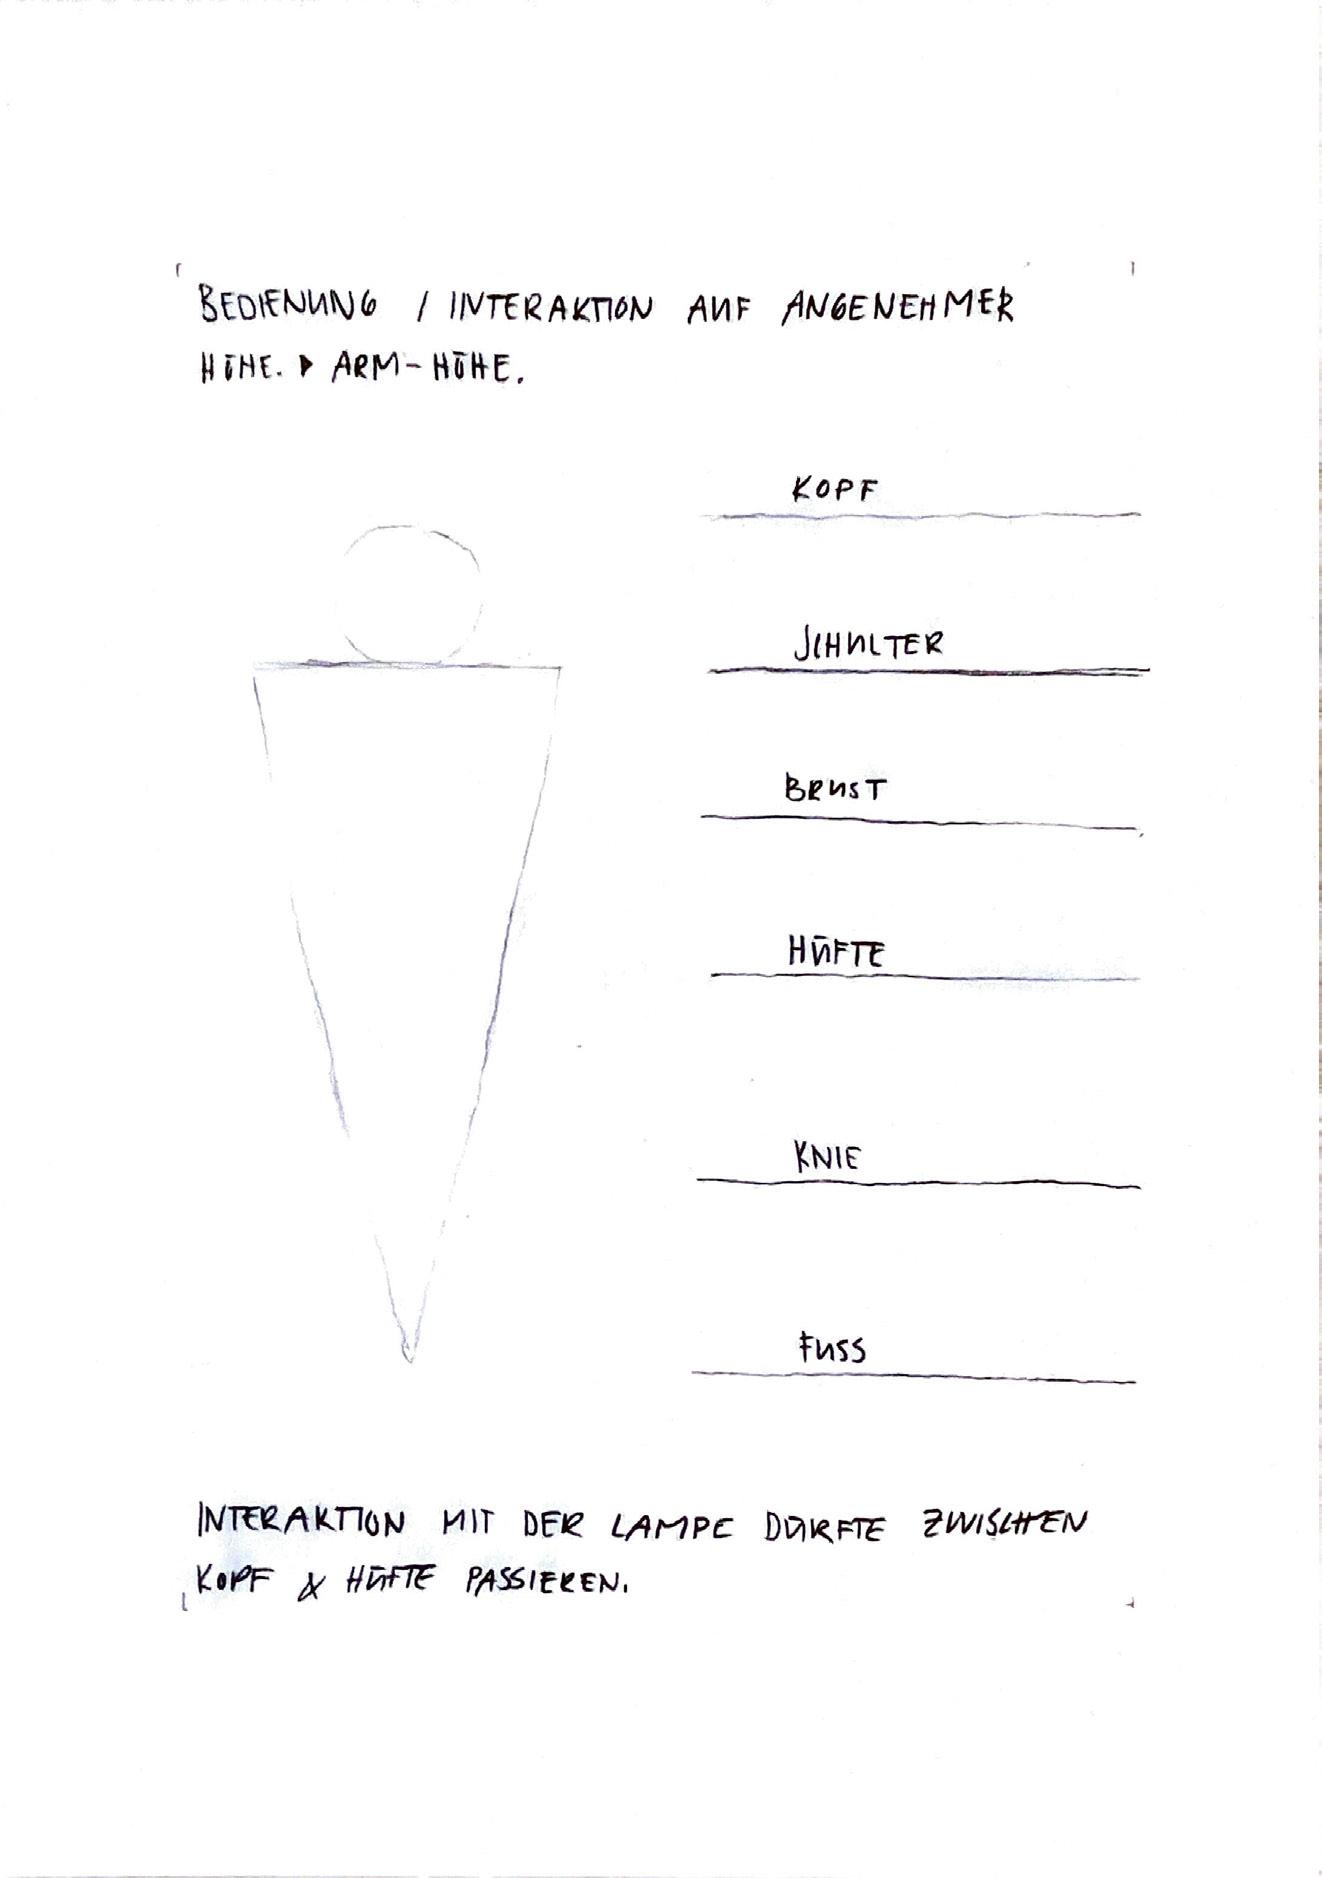 BEDIENUNG / INTERAKTION AUF ANGENEHMER
HÖHE. ▶ ARM-HÖHE.
KOPF
SCHULTER
BRUST
HÜFTE
KNIE
FUSS
INTERAKTION MIT DER LAMPE DÜRFTE ZWISCHEN
KOPF & HÜFTE PASSIEREN.